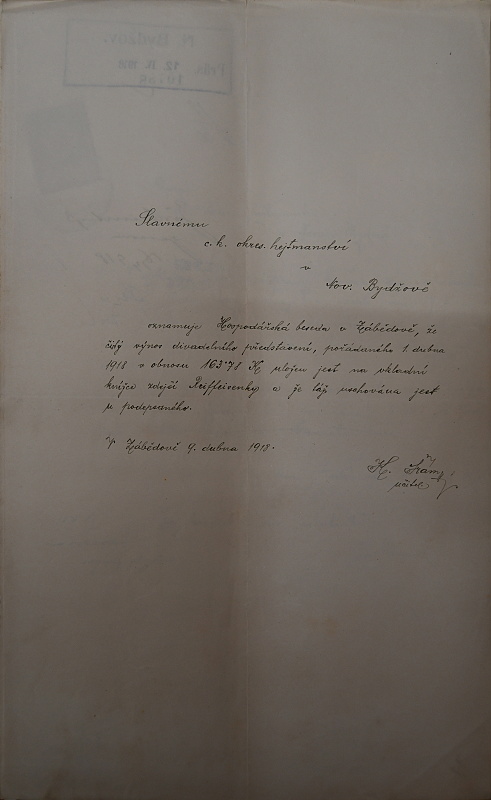 Slavnému
c. k. okres. hejtmanství
v
Nov. Bydžově
oznamuje Hospodářská beseda v Zábědově, že
čistý výnos divadelního představení, pořádaného 1. dubna
1918 v obnosu 163·78 K uložen jest na vkladní
knížce zdejší Reiffeisenky a že táž uschována jest
u podepsaného.
V Zábědově 9. dubna 1918.
K.
učitel